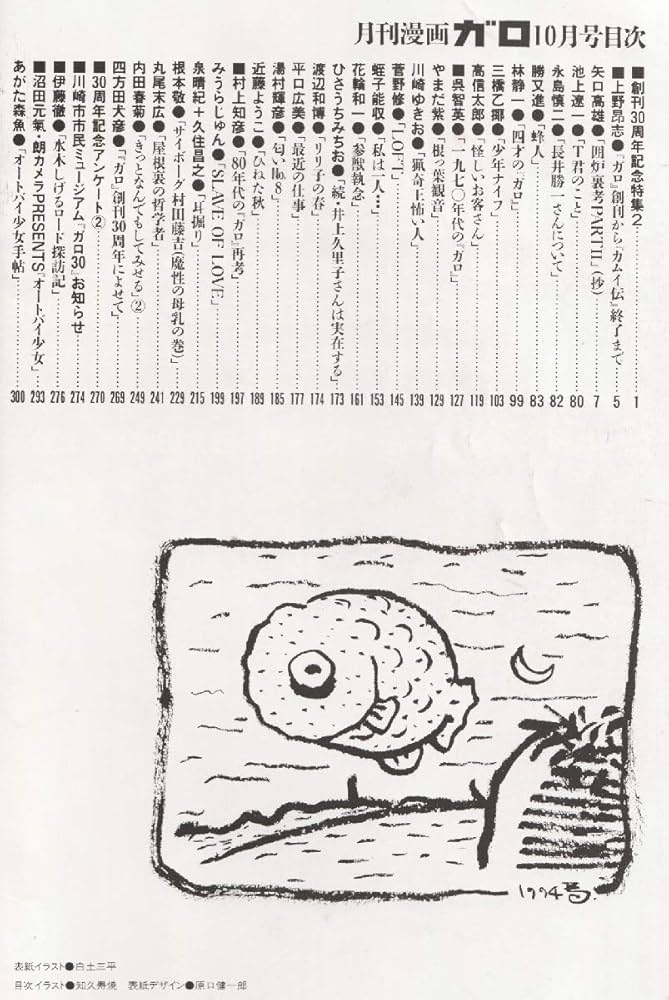 月刊漫画ガロ10月号目次
■創刊30周年記念特集2 1
■上野昂志●『ガロ』創刊から『カムイ伝』終了まで 5
矢口高雄●「囲炉裏考PARTII」(抄) 7
池上遼一●「T君のこと」 80
永島慎二●「長井勝一さんについて」 82
勝又進●「蜂人」 83
林静一●「四才の『ガロ』」 99
三橋乙揶●「少年ナイフ」 103
高信太郎●「怪しいお客さん」 119
■呉智英●「一九七〇年代の『ガロ』」 127
やまだ紫●「根っ葉観音」 129
川崎ゆきお●「猟奇王怖い人」 139
菅野修●「LOVE」 145
蛭子能収●「私は一人…」 153
花輪和一●「参獣執念」 161
ひさうちみちお●「続・井上久里子さんは実在する」 173
渡辺和博●「リリ子の春」 174
平口広美●「最近の仕事」 177
湯村輝彦●「匂いNo.8」 185
近藤ようこ●「ひねた秋」 189
■村上知彦●「80年代の『ガロ』再考」 197
みうらじゅん●「SLAVE OF LOVE」 199
泉晴紀+久住昌之●「井掘り」 215
根本敬●「サイボーグ村田藤吉(魔性の母乳の巻)」 229
丸尾末広●「屋根裏の哲学者」 241
内田春菊●「きっとなんでもしてみせる」② 249
四方田犬彦●「『ガロ』創刊30周年によせて」 269
■30周年記念アンケート② 270
■川崎市市民ミュージアム『ガロ30』お知らせ 274
■伊藤徹●「水木しげるロード探訪記」 276
■沼田元氣・朗カメラPRESENTS『オートバイ少女』 293
あがた森魚●「オートバイ少女手帖」 300
1994
表紙イラスト●白土三平
目次イラスト●知久寿焼 表紙デザイン●原口健一郎